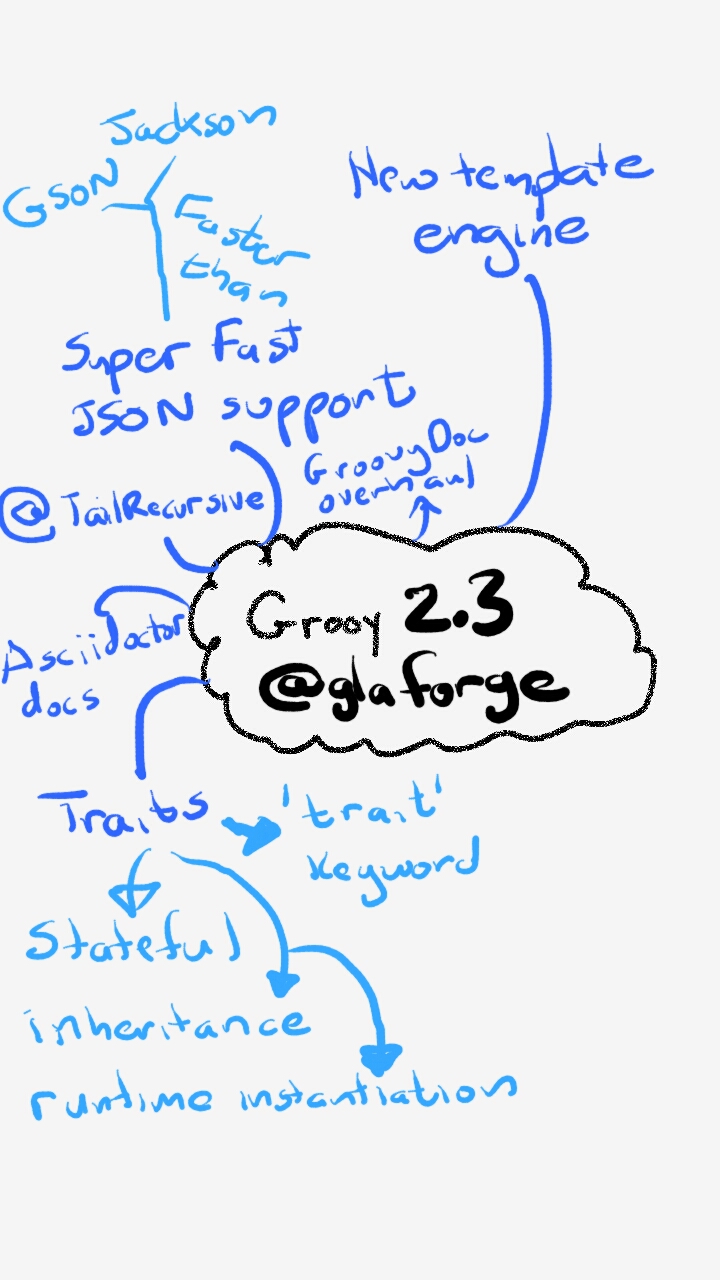 Jackson
GSON
Faster
than
Super Fast
JSON support
New template
engine
GroovyDoc
overhaul
@TailRecursive
Asciidoctor
docs
Grooy 2.3
@glaforge
Traits
'trait'
keyword
Stateful
inheritance
runtime instantiation